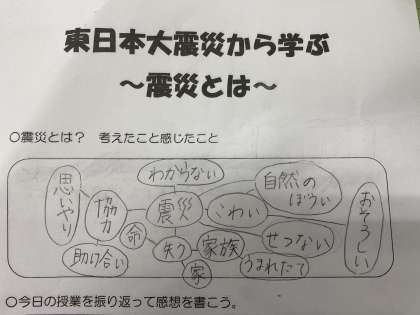 東日本大震災から学ぶ
～震災とは～
○震災とは？ 考えたこと感じたこと
わからない
思いやり
協力
震災
こわい
自然の
ぼうい
おそろしい
命
失う
家族
せつない
助け合い
家
うまれたて
○今日の授業を振り返って感想を書こう。